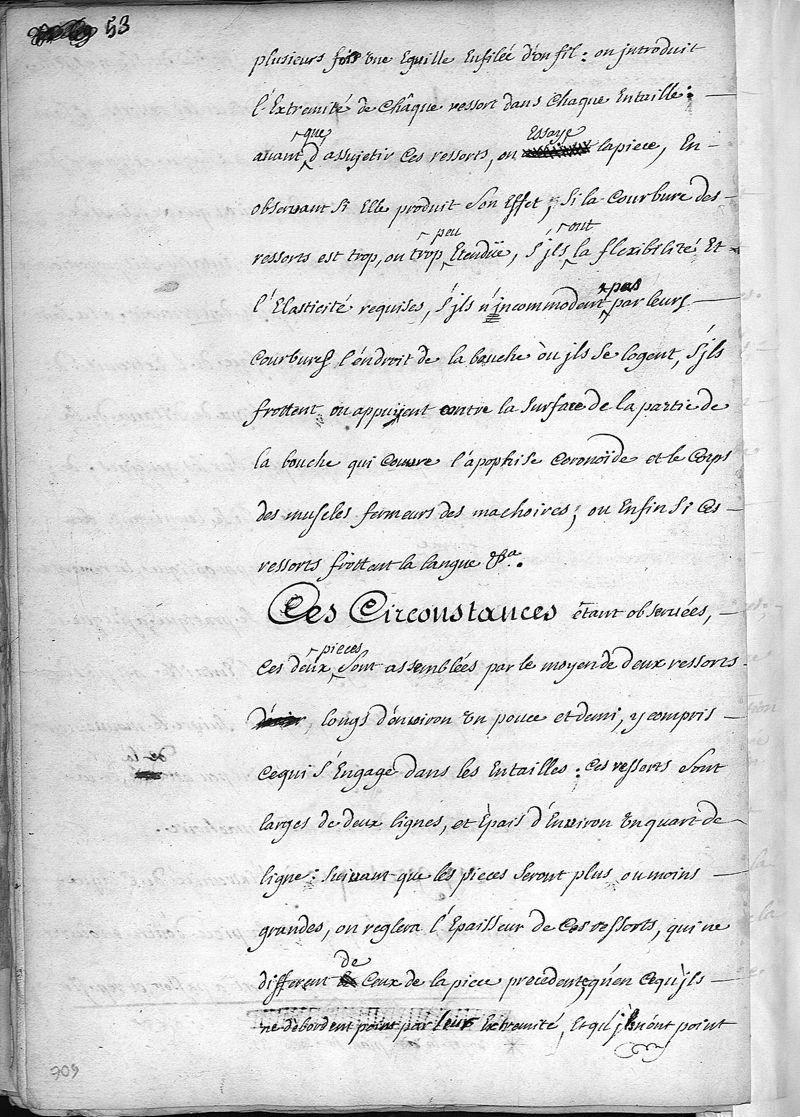 53
plusieurs fois une Eguille Enfilée d'un fil: on introduit
l'Extremité de châque ressort dans chaque Entaille:
que Essaye
avant d'assujetir ces ressorts, on la piece, En
observant si Elle produit son Effet; si la courbure des
peu ont
ressorts est trop, ou trop Etendüe, s'jls la flexibilité Et
pas
l'Elasticité requises, s'jls n'jncommodent par leurs
courbures l'éndroit de la bouche òu jls se logent, s'jls
frottent, ou appuyent contre la surface de la partie de
la bouche qui couvre l'apophise coronoïde et le corps
des muscles fermeurs des machoires; ou Enfin si ces
ressorts frottent la langue &.a.
Ces Circonstances étant observées,
pieces
ces deux sont assemblées par le moyen de deux ressorts
, longs d'énviron un pouce et demi, y compris
de la
ce qui s'Engage dans les Entailles: ces ressorts sont
larges de deux lignes, et Èpais d'Environ un quart de
ligne: suivant que les pieces seront plus ou moins
grandes, on reglera l'Epaisseur de ces ressorts, qui ne
de
different ceux de la piece precedente, qu'en ce qu'jls
ne débordent point par leur Extremité, Et qu'jls n'ont point
309